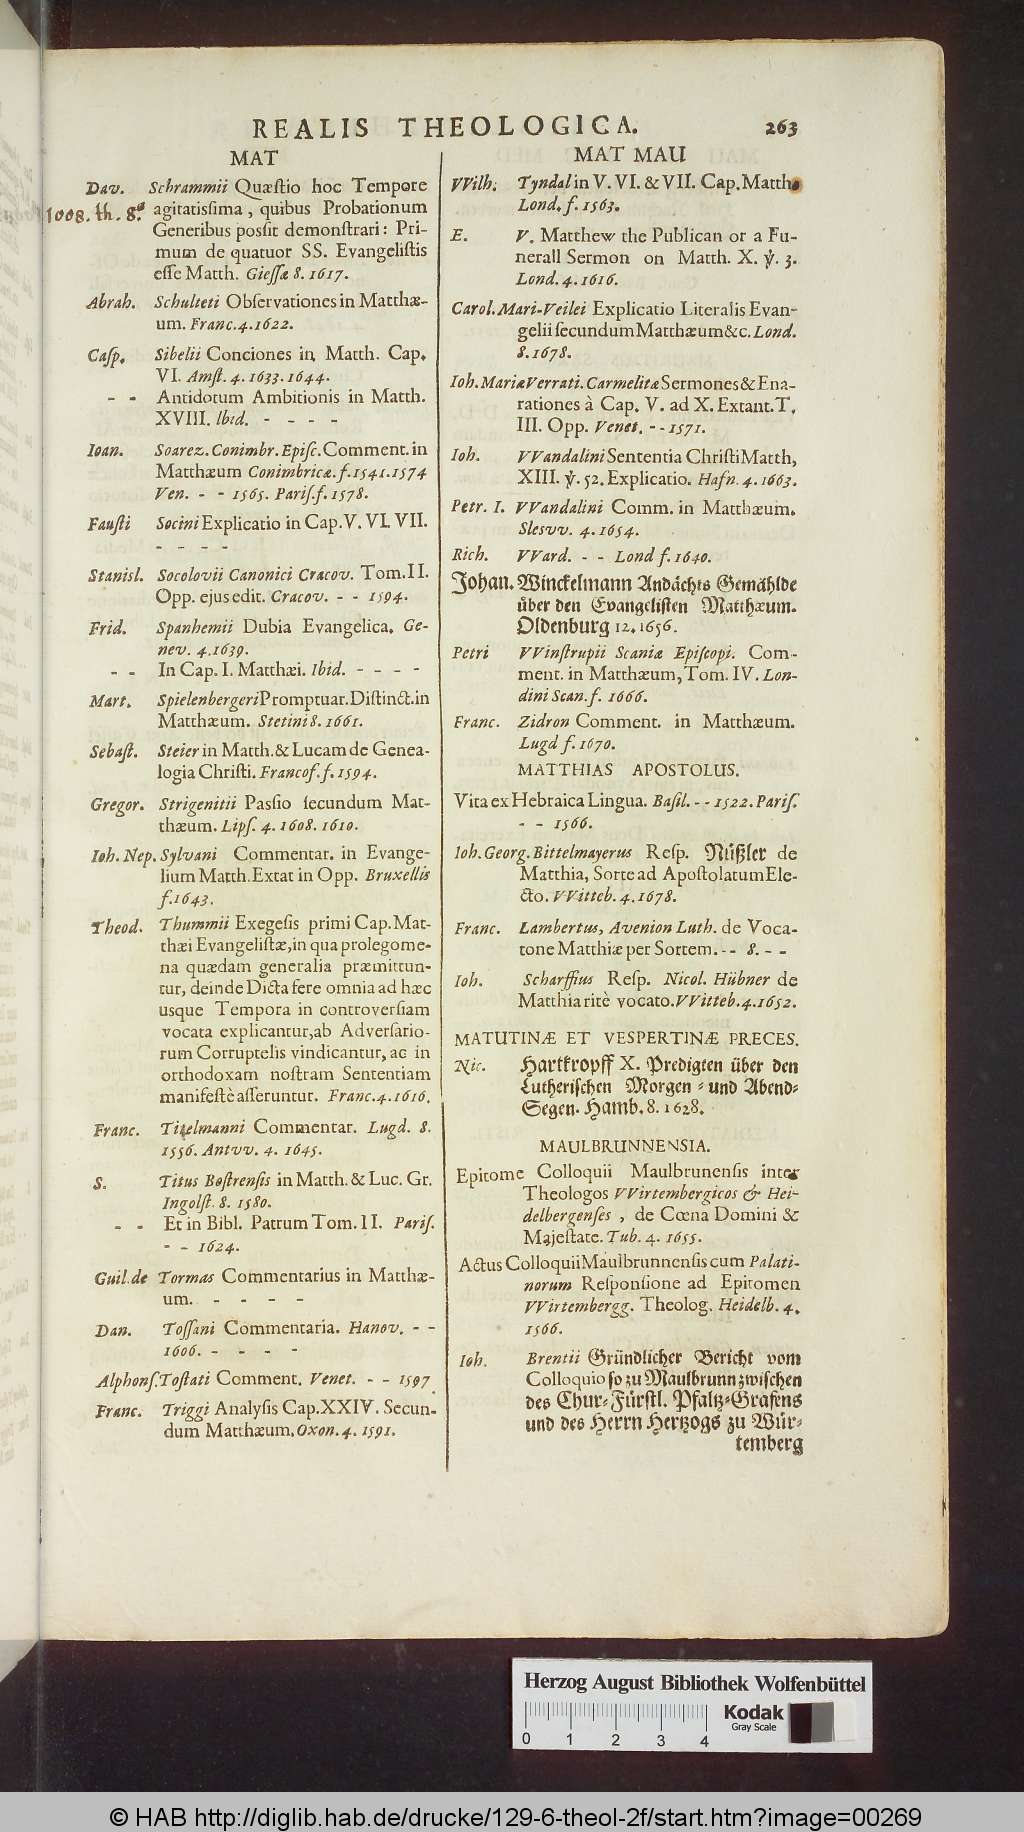 REALIS THEOLOGICA. 263
MAT
Dav. Schrammii Quæstio hoc Tempore
1008. th. 8.º
agitatissima, quibus Probationum
Generibus possit demonstrari: Pri-
mum de quatuor SS. Evangelistis
esse Matth. Giessæ 8. 1617.
Abrah. Schulteti Observationes in Matthæ-
um. Franc. 4. 1622.
Casp. Sibelii Conciones in Matth. Cap.
VI. Amst. 4. 1633. 1644.
- - Antidotum Ambitionis in Matth.
XVIII. Ibid. - - - -
Ioan. Soarez. Conimbr. Episc. Comment. in
Matthæum Conimbricæ. f. 1541. 1574
Ven. - - 1565. Paris. f. 1578.
Fausti Socini Explicatio in Cap. V. VI. VII.
- - - -
Stanisl. Socolovii Canonici Cracov. Tom. II.
Opp. ejus edit. Cracov. - - 1594.
Frid. Spanhemii Dubia Evangelica. Ge-
nev. 4. 1639.
- - In Cap. I. Matthæi. Ibid. - - - -
Mart. Spielenbergeri Promptuar. Distinct. in
Matthæum. Stetini 8. 1661.
Sebast. Steier in Matth. & Lucam de Genea-
logia Christi. Francof. f. 1594.
Gregor. Strigenitii Passio secundum Mat-
thæum. Lips. 4. 1608. 1610.
Ioh. Nep. Sylvani Commentar. in Evange-
lium Matth. Extat in Opp. Bruxellis
f. 1643.
Theod. Thummii Exegesis primi Cap. Mat-
thæi Evangelistæ, in qua prolegome-
na quædam generalia præmittun-
tur, deinde Dicta fere omnia ad hæc
usque Tempora in controversiam
vocata explicantur, ab Adversario-
rum Corruptelis vindicantur, ac in
orthodoxam nostram Sententiam
manifestè asseruntur. Franc. 4. 1616.
Franc. Titelmanni Commentar. Lugd. 8.
1556. Antvv. 4. 1645.
S. Titus Bostrensis in Matth. & Luc. Gr.
Ingolst. 8. 1580.
- - Et in Bibl. Patrum Tom. II. Paris.
- - 1624.
Guil. de Tormas Commentarius in Matthæ-
um. - - - -
Dan. Tossani Commentaria. Hanov. - -
1606. - - - -
Alphons. Tostati Comment. Venet. - - 1597
Franc. Triggi Analysis Cap. XXIV. Secun-
dum Matthæum. Oxon. 4. 1591.
MAT MAU
VVilh. Tyndal in V. VI. & VII. Cap. Matth.
Lond. f. 1563.
E. V. Matthew the Publican or a Fu-
nerall Sermon on Matth. X. ℣. 3.
Lond. 4. 1616.
Carol. Mari-Veilei Explicatio Literalis Evan-
gelii secundum Matthæum &c. Lond.
8. 1678.
Ioh. Mariæ Verrati. Carmelitæ Sermones & Ena-
rationes à Cap. V. ad X. Extant. T.
III. Opp. Venet. - - 1571.
Ioh. VVandalini Sententia Christi Matth,
XIII. ℣. 52. Explicatio. Hafn. 4. 1663.
Petr. I. VVandalini Comm. in Matthæum.
Slesvv. 4. 1654.
Rich. VVard. - - Lond f. 1640.
Johan. Winckelmann Andächts Gemählde
über den Evangelisten Matthæum.
Oldenburg 12. 1656.
Petri VVinstrupii Scaniæ Episcopi. Com-
ment. in Matthæum, Tom. IV. Lon-
dini Scan. f. 1666.
Franc. Zidron Comment. in Matthæum.
Lugd f. 1670.
MATTHIAS APOSTOLUS.
Vita ex Hebraica Lingua. Basil. - - 1522. Paris.
- - 1566.
Ioh. Georg. Bittelmayerus Resp. Nüßler de
Matthia, Sorte ad Apostolatum Ele-
cto. VVitteb. 4. 1678.
Franc. Lambertus, Avenion Luth. de Voca-
tone Matthiæ per Sortem. - - 8. - -
Ioh. Scharffius Resp. Nicol. Hübner de
Matthia ritè vocato. VVitteb. 4. 1652.
MATUTINÆ ET VESPERTINÆ PRECES.
Nic. Hartkropff X. Predigten über den
Lutherischen Morgen- und Abend-
Segen. Hamb. 8. 1628.
MAULBRUNNENSIA.
Epitome Colloquii Maulbrunensis inter
Theologos VVirtembergicos & Hei-
delbergenses, de Cœna Domini &
Majestate. Tub. 4. 1655.
Actus Colloquii Maulbrunnensis cum Palati-
norum Responsione ad Epitomen
VVirtembergg. Theolog. Heidelb. 4.
1566.
Ioh. Brentii Gründlicher Bericht vom
Colloquio so zu Maulbrunn zwischen
des Chur-Fürstl. Pfaltz-Grafens
und des Herrn Hertzogs zu Wür-
temberg
Herzog August Bibliothek Wolfenbüttel
Kodak
Gray Scale
0 1 2 3 4
© HAB http://diglib.hab.de/drucke/129-6-theol-2f/start.htm?image=00269